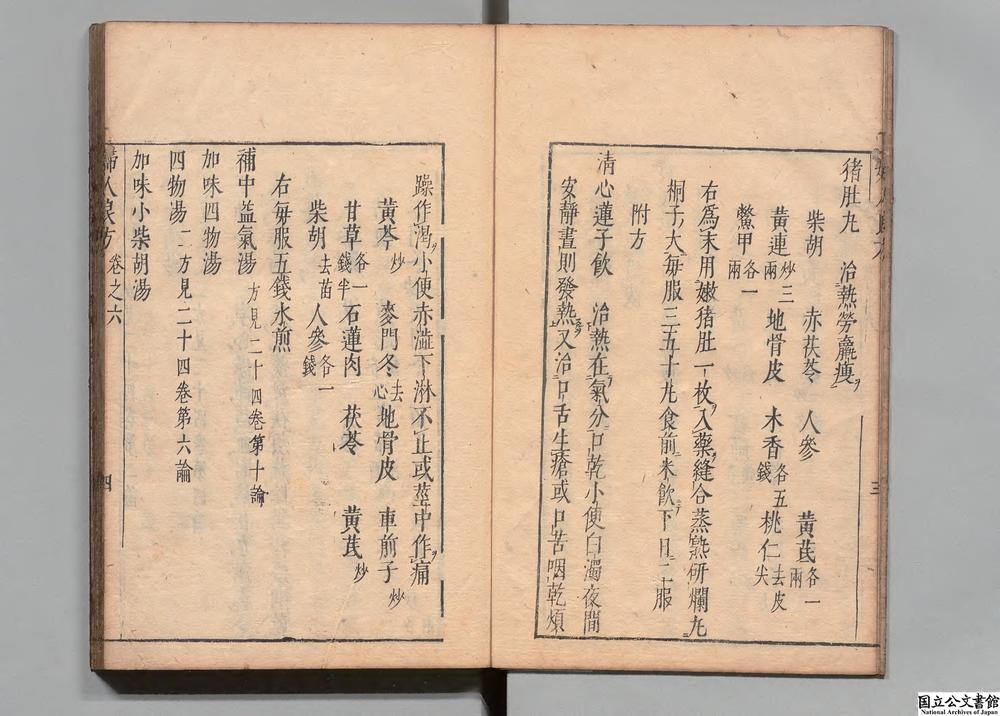 猪肚丸　治熱勞羸瘦
柴胡　赤茯苓　人參　黃茋各一兩
黃連炒三兩　地骨皮　木香各五錢　桃仁去皮尖
鱉甲各一兩
右爲末用嫩猪肚一枚入藥縫合蒸熟研爛丸
桐子大每服三五十丸食前米飲下日二十服
附方
清心蓮子飲　治熱在氣分口乾小便白濁夜間
安靜晝則發熱又治口舌生瘡或口苦咽乾煩
躁作渴小便赤澁下淋不止或莖中作痛
黃芩炒　麥門冬去心　地骨皮　車前子炒
甘草各一錢半　石蓮肉　茯苓　黃茋炒
柴胡去苗　人參各一錢
右每服五錢水煎
補中益氣湯　方見二十四卷第十論
加味四物湯
四物湯　二方見二十四卷第六論
加味小柴胡湯
婦人良方　卷之六　四
三
国立公文書館
National Archives of Japan